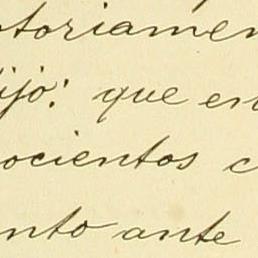 otoriamen
ijo: que en
ocientos c
nto ante